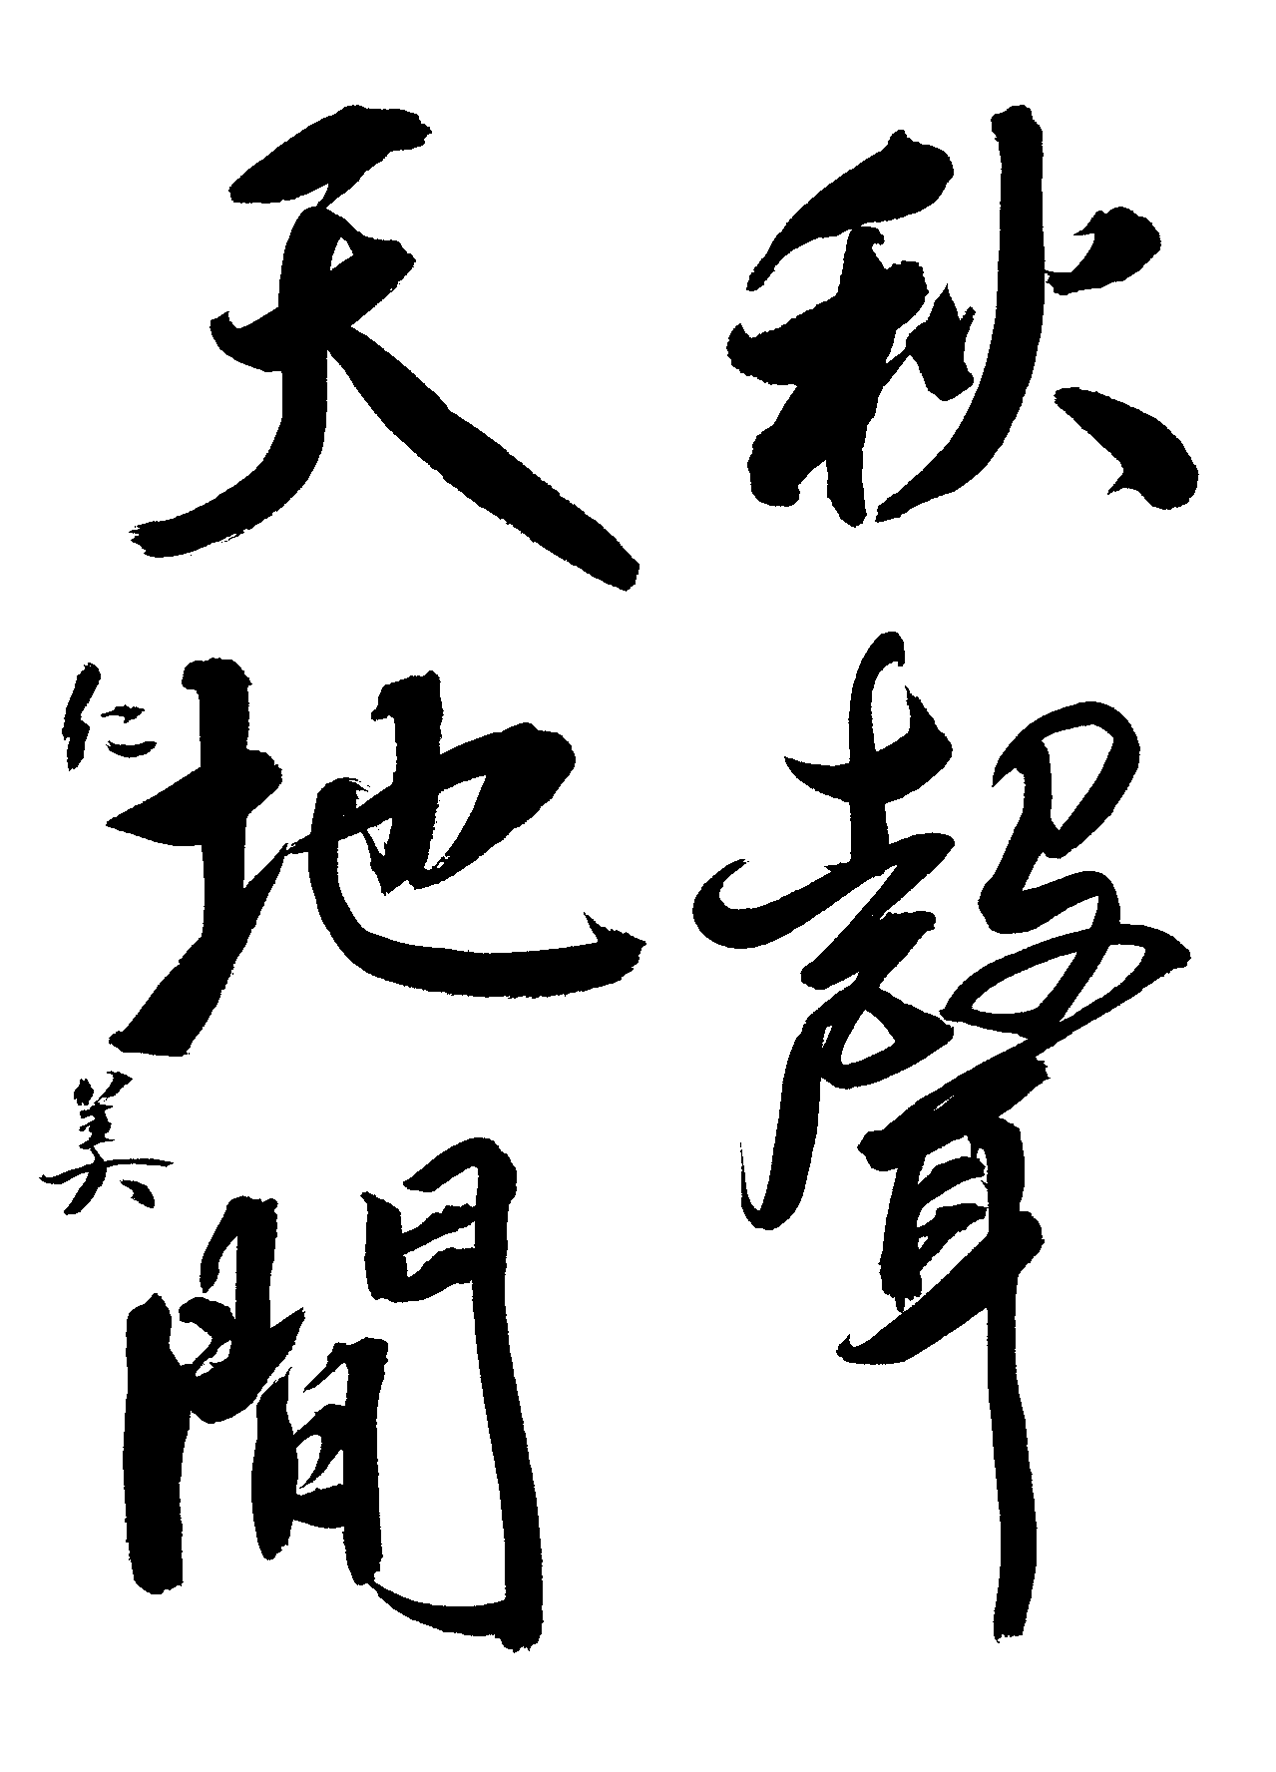 秋聲
天地間
仁美